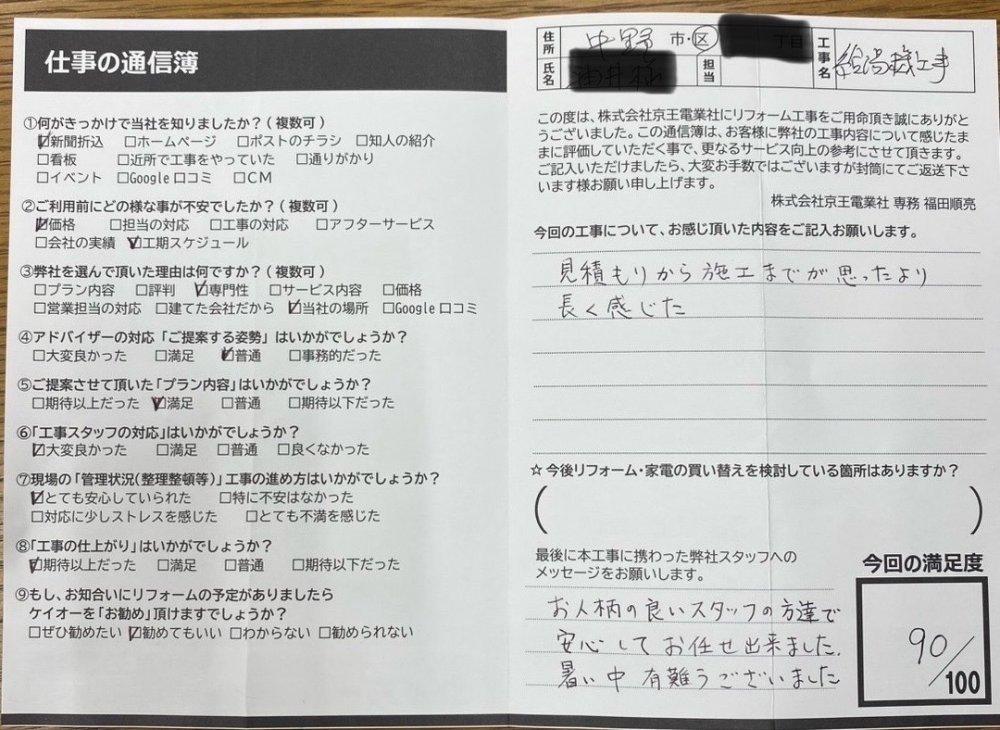 仕事の通信簿
①何がきっかけで当社を知りましたか？(複数可)
☑新聞折込 □ホームページ □ポストのチラシ □知人の紹介
□看板 □近所で工事をやっていた □通りがかり
□イベント □Google口コミ □CM
②ご利用前にどの様な事が不安でしたか？(複数可)
☑価格 □担当の対応 □工事の対応 □アフターサービス
□会社の実績 ☑工期スケジュール
③弊社を選んで頂いた理由は何ですか？(複数可)
□プラン内容 □評判 ☑専門性 □サービス内容 □価格
□営業担当の対応 □建てた会社だから ☑当社の場所 □Google口コミ
④アドバイザーの対応「ご提案する姿勢」はいかがでしょうか？
□大変良かった □満足 ☑普通 □事務的だった
⑤ご提案させて頂いた「プラン内容」はいかがでしょうか？
□期待以上だった ☑満足 □普通 □期待以下だった
⑥「工事スタッフの対応」はいかがでしょうか？
☑大変良かった □満足 □普通 □良くなかった
⑦現場の「管理状況(整理整頓等)」工事の進め方はいかがでしょうか？
☑とても安心していられた □特に不安はなかった
□対応に少しストレスを感じた □とても不満を感じた
⑧「工事の仕上がり」はいかがでしょうか？
☑期待以上だった □満足 □普通 □期待以下だった
⑨もし、お知合いにリフォームの予定がありましたら
ケイオーを「お勧め」頂けますでしょうか？
□ぜひ勧めたい ☑勧めてもいい □わからない □勧められない
住所 中野 市・区 丁目
氏名 担当
工事名 給湯機工事
この度は、株式会社京王電業社にリフォーム工事をご用命頂き誠にありがと
うございました。この通信簿は、お客様に弊社の工事内容について感じたま
まに評価していただく事で、更なるサービス向上の参考にさせて頂きます。
ご記入いただけましたら、大変お手数ではございますが封筒にてご返送下さ
います様お願い申し上げます。
株式会社京王電業社 専務 福田順亮
今回の工事について、お感じ頂いた内容をご記入お願いします。
見積もりから施工までが思ったより
長く感じた
☆今後リフォーム・家電の買い替えを検討している箇所はありますか？
( )
最後に本工事に携わった弊社スタッフへの
メッセージをお願いします。
お人柄の良いスタッフの方達で
安心してお任せ出来ました.
暑い中有難うございました
今回の満足度
90/100